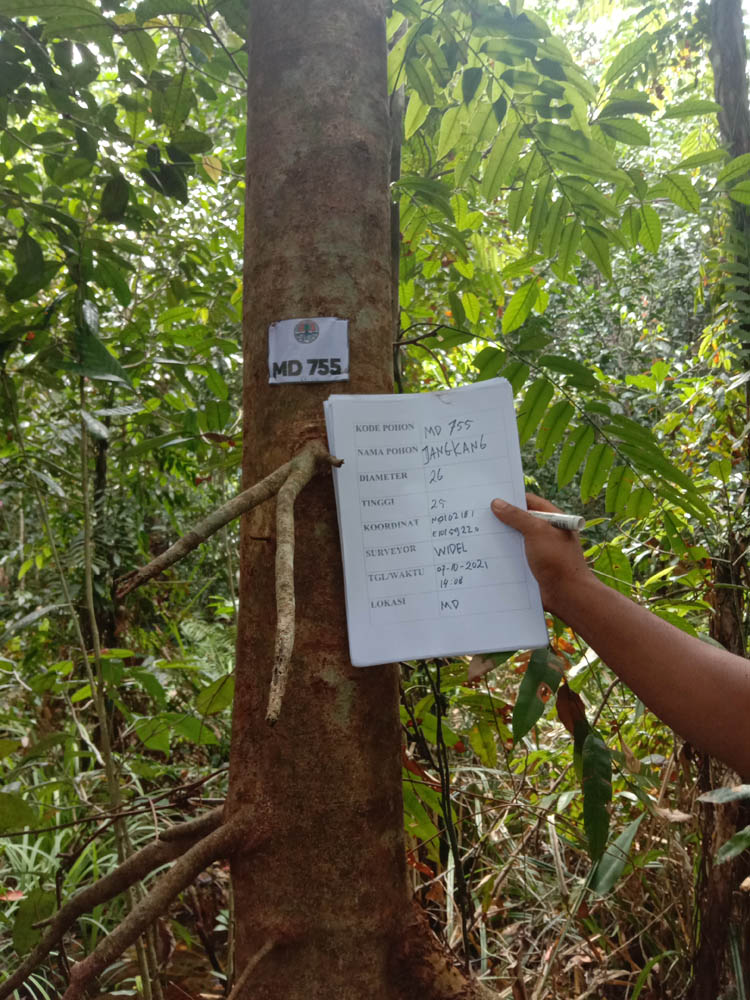 MD 755
KODE POHON MD 755
NAMA POHON JANGKANG
DIAMETER 26
TINGGI 25
KOORDINAT
SURVEYOR WIDEL
TGL/WAKTU 07-10-2021
14:08
LOKASI MD